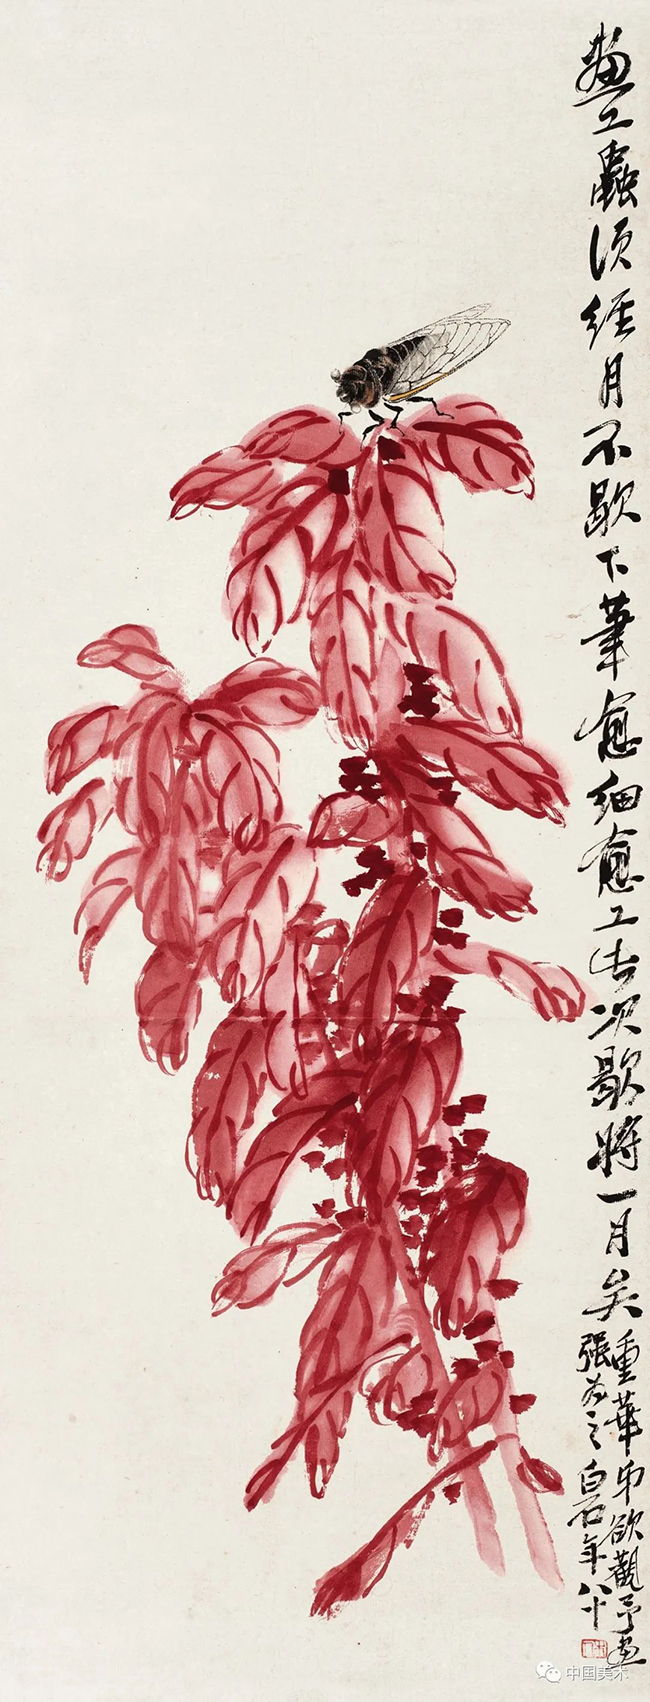 畫工蟲須經月不歇下筆愈細愈工此次歇將一月矣
重華弟欲觀予畫
強為之白石年八十
中国美术